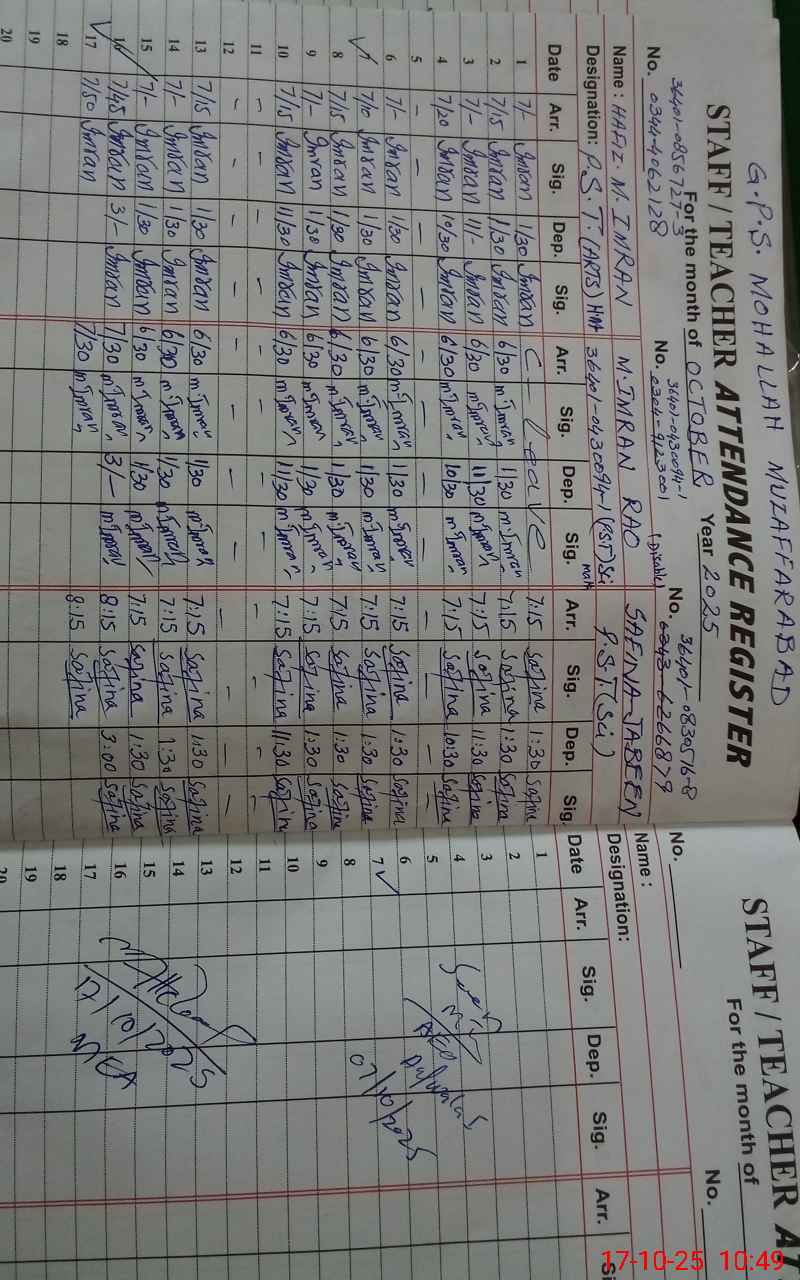 G.P.S. MOHALLAH MUZAFFARABAD
STAFF / TEACHER ATTENDANCE REGISTER
For the month of OCTOBER Year 2025
36401-0856727-3 36401-0430094-1 36401-0830516-8
No. 0344-4062128 No. 0304-9223001 No. 0343-6266879
Name: HAFIZ. M. IMRAN M.IMRAN RAO (Disable) SAFINA JABEEN
Designation: P.S.T. (ARTS) 36401-0430094-1 (PST) Sci math P.S.T.(Sci)
Date Arr. Sig. Dep. Sig. Arr. Sig. Dep. Sig. Arr. Sig. Dep. Sig.
1 7/- Imran 1/30 Imran C — leave 7:15 Safina 1:30 Safina
2 7/15 Imran 1/30 Imran 6/30 m Imran 1/30 m Imran 7:15 Safina 1:30 Safina
3 7/- Imran 11/- Imran 6/30 m Imran 11/30 m Imran 7:15 Safina 11:30 Safina
4 7/20 Imran 10/30 Imran 6/30 m Imran 10/30 m Imran 7:15 Safina 10:30 Safina
5 — — — — — — — — — — — —
6 7/- Imran 1/30 Imran 6/30 m Imran 1/30 m Imran 7:15 Safina 1:30 Safina
7 7/10 Imran 1/30 Imran 6/30 m Imran 1/30 m Imran 7:15 Safina 1:30 Safina
8 7/15 Imran 1/30 Imran 6/30 m Imran 1/30 m Imran 7:15 Safina 1:30 Safina
9 7/- Imran 1/30 Imran 6/30 m Imran 1/30 m Imran 7:15 Safina 1:30 Safina
10 7/15 Imran 11/30 Imran 6/30 m Imran 11/30 m Imran 7:15 Safina 11:30 Safina
11 — — — — — — — — — — — —
12 — — — — — — — — — — — —
13 7/15 Imran 1/30 Imran 6/30 m Imran 1/30 m Imran 7:15 Safina 1:30 Safina
14 7/- Imran 1/30 Imran 6/30 m Imran 1/30 m Imran 7:15 Safina 1:30 Safina
15 7/- Imran 1/30 Imran 6/30 m Imran 1/30 m Imran 7:15 Safina 1:30 Safina
16 7/45 Imran 3/- Imran 7/30 m Imran 3/- m Imran 8:15 Safina 3:00 Safina
17 7/50 Imran 7/30 m Imran 8:15 Safina
18
19
20
STAFF / TEACHER AT
For the month of
No. No.
Name:
Designation:
Date Arr. Sig. Dep. Sig. Arr. Si
1
2
3
4
5
6
7
8
9
10
11
12
13
14
15
16
17
18
19
20
Seen
07/10/2025
17/10/2025
17-10-25 10:49